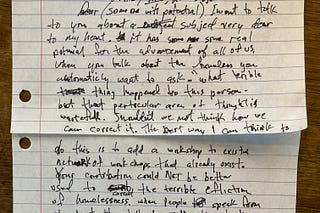 Dear (someone with potential) I want to talk
to you about a subject very dear
to my heart. It has some real
potential for the advancement of all of us.
when you talk about the homeless you
automaticly want to ask "what
thing happened to this person-
but that perticular area of thought is
wasteful. Shouldnt we not think how we
can correct it. The best way I can think to
do this is to add a workshop to existing
network of work shops that already exist.
Your contribution could Not be better
used to correct the terrible affliction
of homelessness. when People speak from